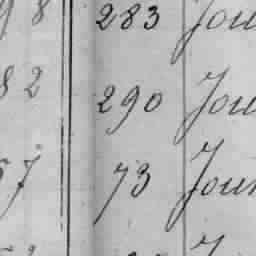 98 283 Jou
82 290 Jou
57 73 Jour